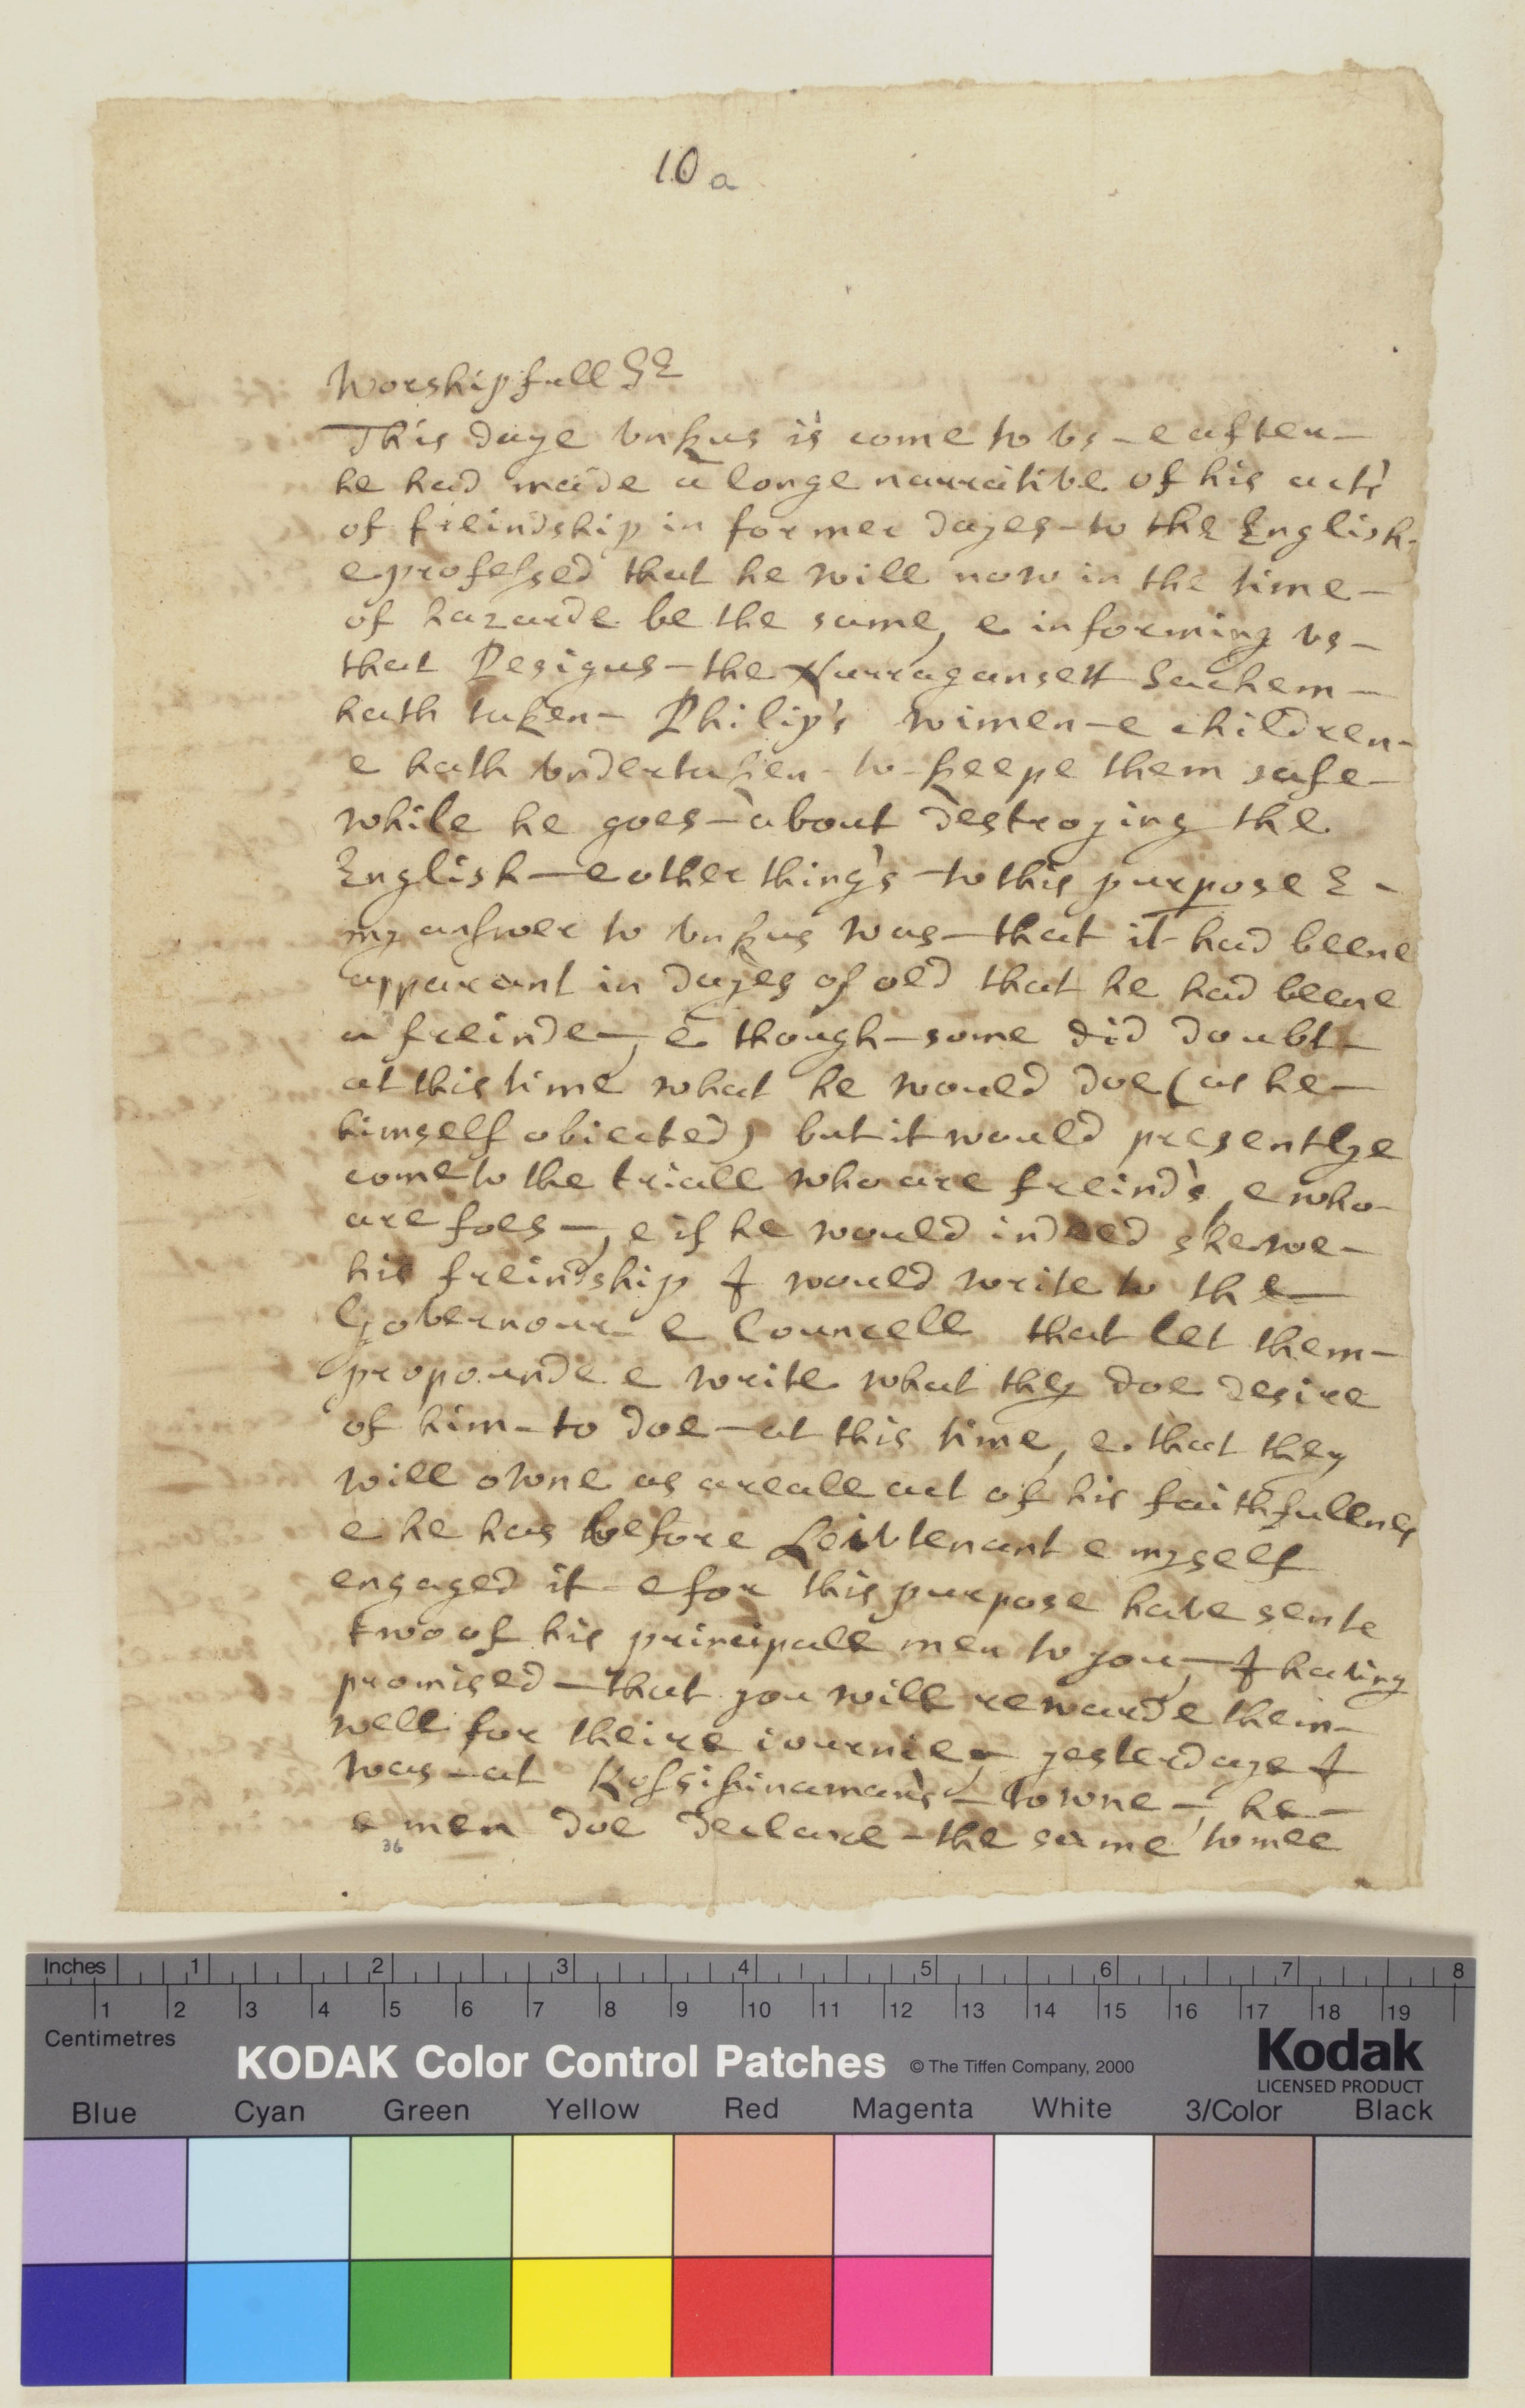 10 a
Worshipfull Sr
This daye vnkus is come to vs - & after -
he had made a longe narrative of his acts
of freindship in former dayes - to the English -
& professed that he will now in the time -
of hazarde be the same, & informing vs -
that Pesigus - the Narragansett Sachem -
hath taken - Philip's wimen - & children -
& hath vndertaken - to - keepe them safe -
while he goes - about destroying the
English - & other things - to this purpose &
my answer to vnkus was - that it had beene
apparant in dayes of old that he had beene
a freinde -, & though - some did doubt -
at this time what he would doe (as he -
himself obiected) but it would presentlye
come to the triall who are freinds, & who -
are foes -, & if he would indeed shewe -
his freindship I would write to the -
Governour - & Councell that let them -
propounde & write what they doe desire
of him - to doe - at this time, & that they
will owne as a reall act of his faithfullnes
& he has before Leivtenant & myself
engaged it - & for this purpose have sente
two of his principall men to you, - I having
promised - that you will rewarde them -
well for theire iournie, - yesterdaye I
was - at Kossikinamans - towne -, he -
& men doe declare - the same to mee
36
Inches 1 2 3 4 5 6 7 8
1 2 3 4 5 6 7 8 9 10 11 12 13 14 15 16 17 18 19
Centimetres
KODAK Color Control Patches © The Tiffen Company, 2000 Kodak
LICENSED PRODUCT
Blue Cyan Green Yellow Red Magenta White 3/Color Black